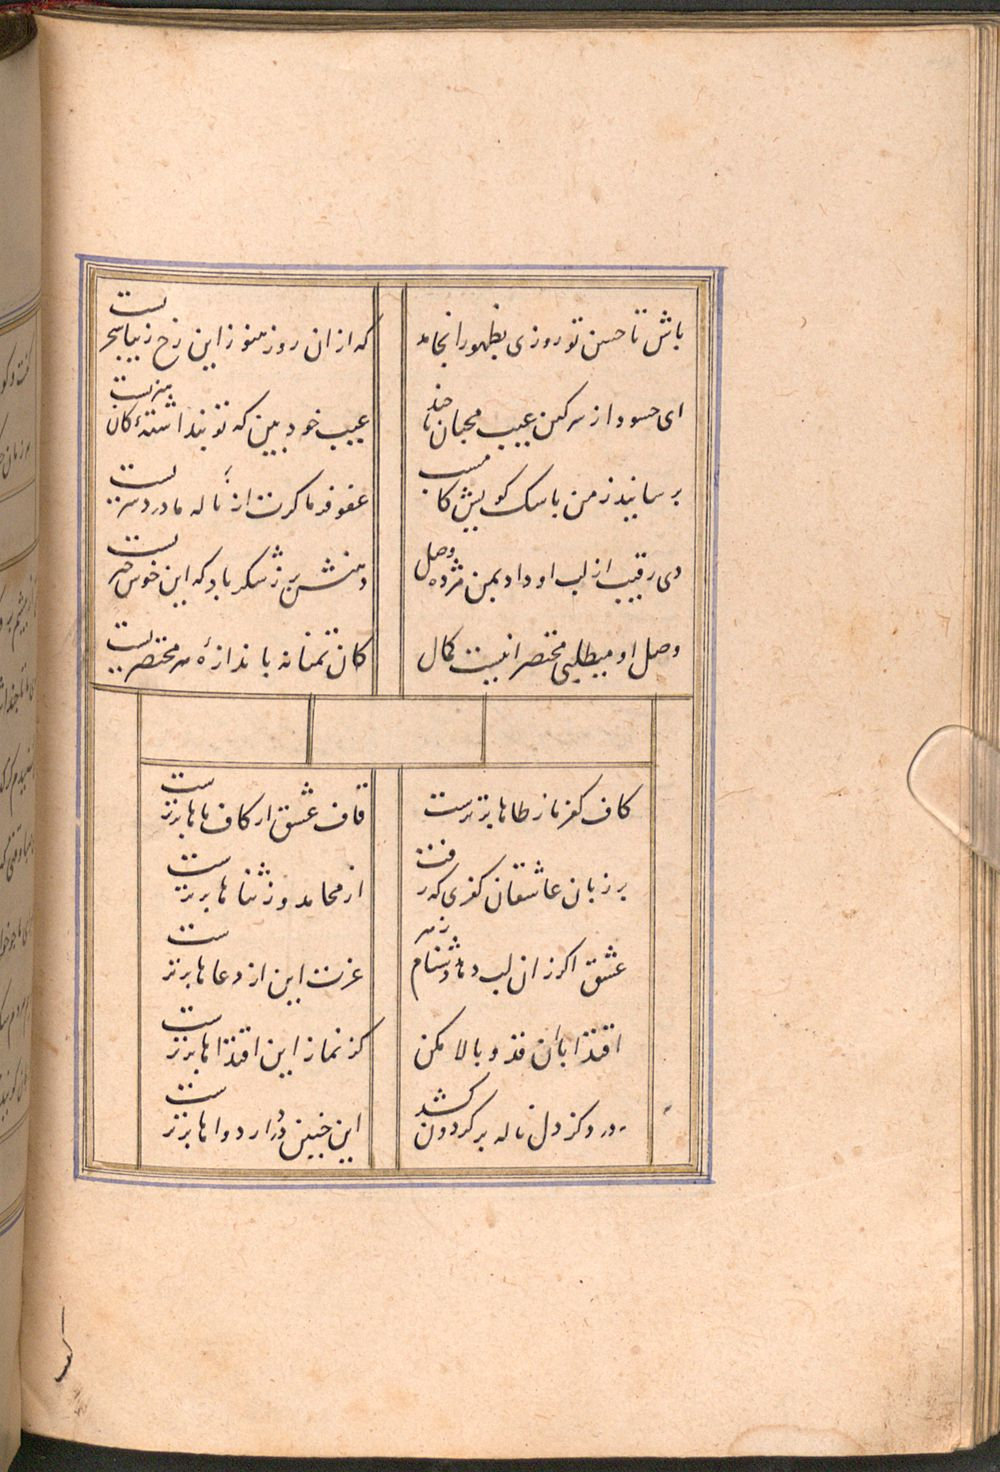 باش تا حسن تو روزی بظهور انجامد
که از ان روز هنوز این رخ زیبا سحریست
ای حسود از سر کین عیب محبان تا چند
عیب خود بین که تو پنداشتهٔ کان هنریست
برسانید ز من باسک کویش کامسب
عفو فرما کرت از ناله ما دردسریست
دی رقیب از لب او داد بمن مژده وصل
دهنش پر ز شکر باد که این خوش خبریست
وصل او میطلبی مختصرا نیست کمال
کان تمنا نه باندازهٔ سر مختصریست
کاف کفر ما ز طاها برترست
قاف عشق از کاف ماها برترست
بر زبان عاشقان کفری که رفت
از محامد وز ثناها برترست
عشق اکر زان لب دهد دشنام زمر
عزت این از دعاها برترست
اقتدا با آن قد و بالا مکن
کز نماز این اقتداها برترست
درد کز دل ناله بر کردون کشد
این چنین درد از دواها برترست